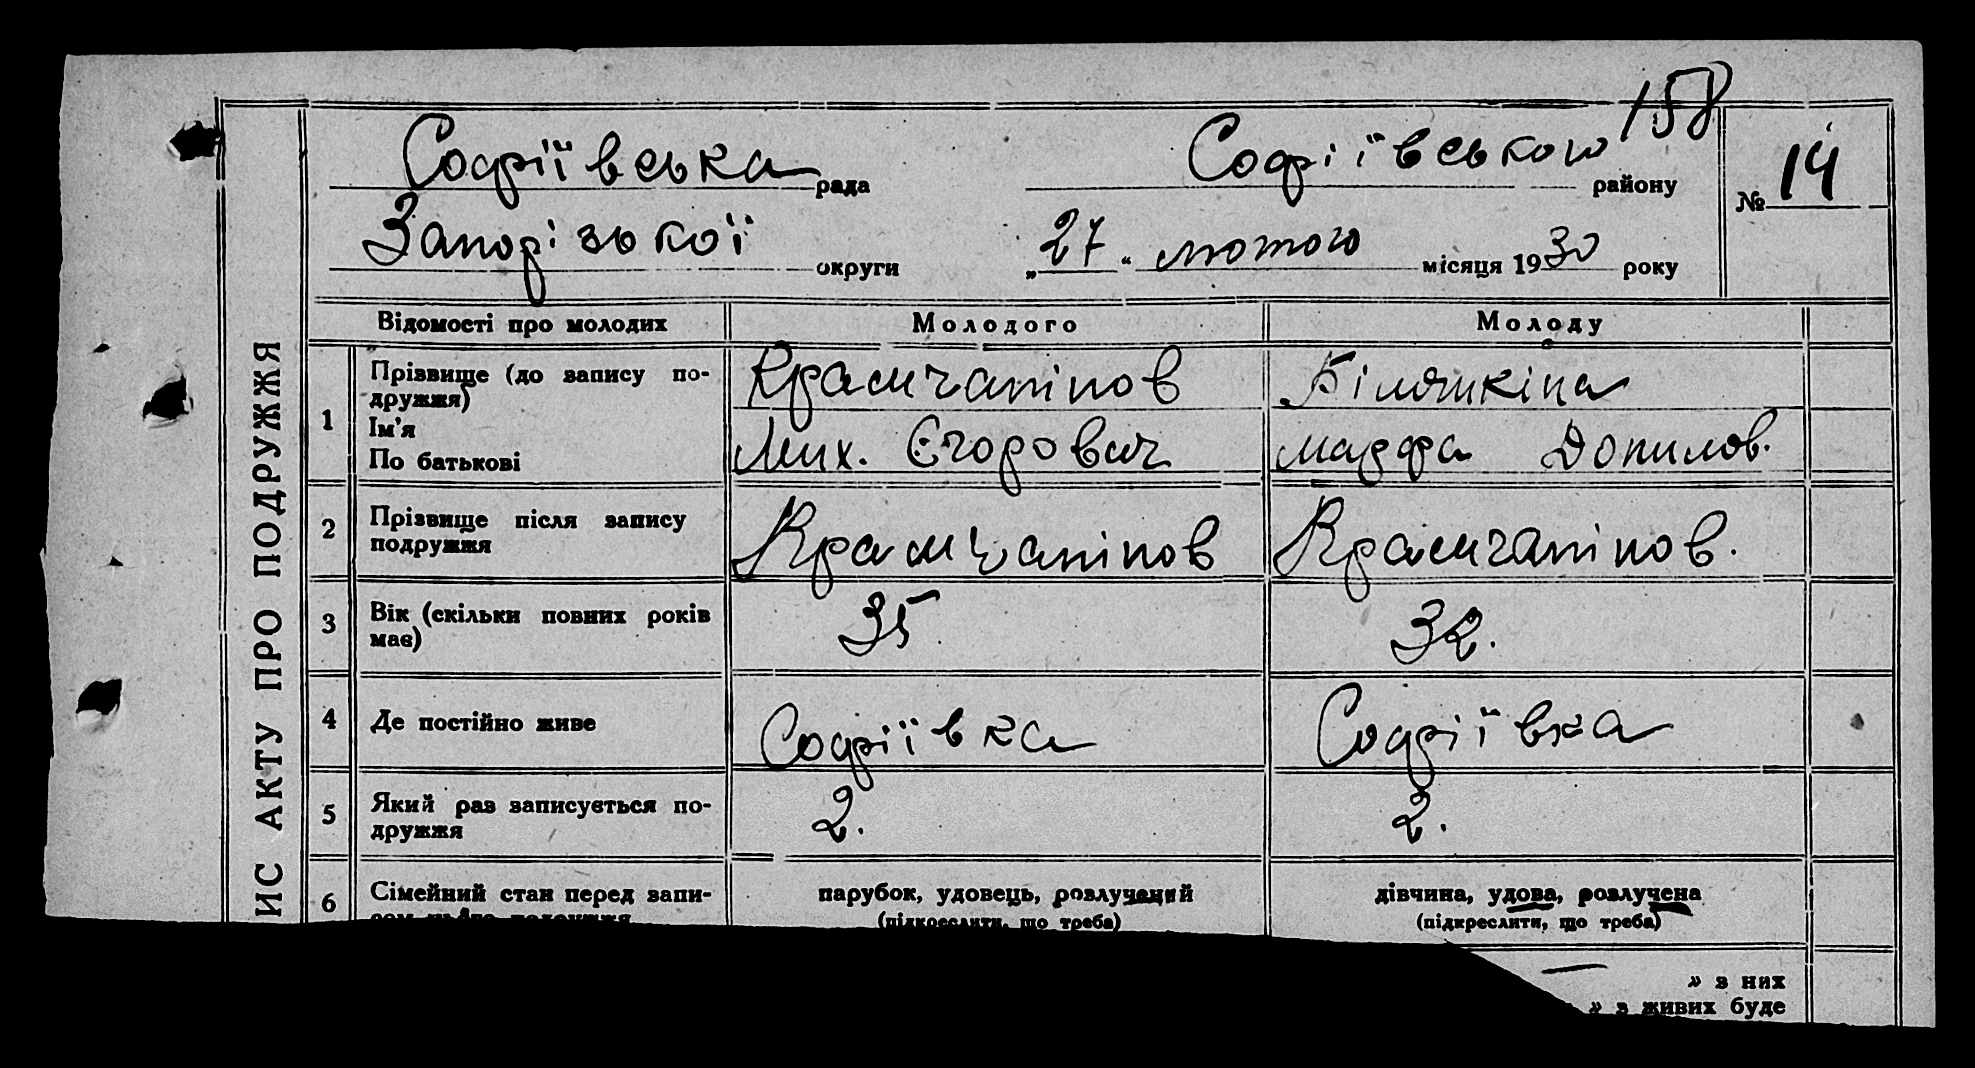 158
Софіївська рада
Софіївською району
№ 14
Запорізької округи
„27“ лютого місяця 1930 року
ИС АКТУ ПРО ПОДРУЖЖЯ
Відомості про молодих
Молодого
Молоду
1
Прізвище (до запису по-
дружжя)
Ім'я
По батькові
Крамчанінов
Мих. Єгорович
Біляшкіна
Марфа Данилов.
2
Прізвище після запису
подружжя
Крамчанінов
Крамчанінов.
3
Вік (скільки повних років
має)
35
32.
4
Де постійно живе
Софіївка
Софіївка
5
Який раз записується по-
дружжя
2.
2.
6
Сімейний стан перед запи-
сом цього подружжя
парубок, удовець, розлучений
(підкреслити, що треба)
дівчина, удова, розлучена
(підкреслити, що треба)
» з них
» з живих буде